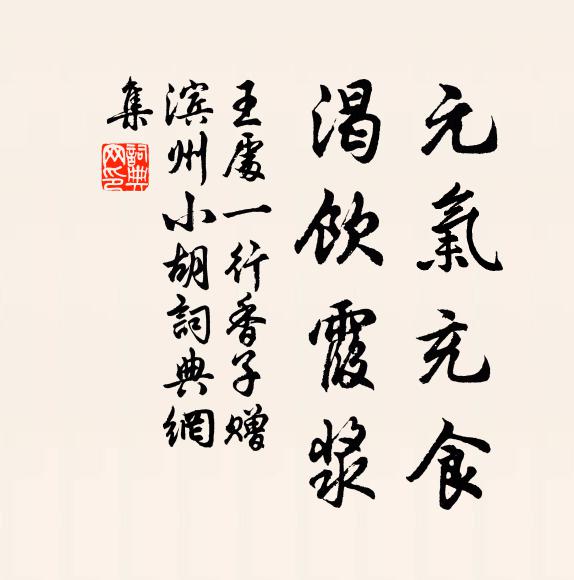 元氣充食
渴飲霞漿
王處一行香子贈
濱州小胡詞典網
集
詞典網印